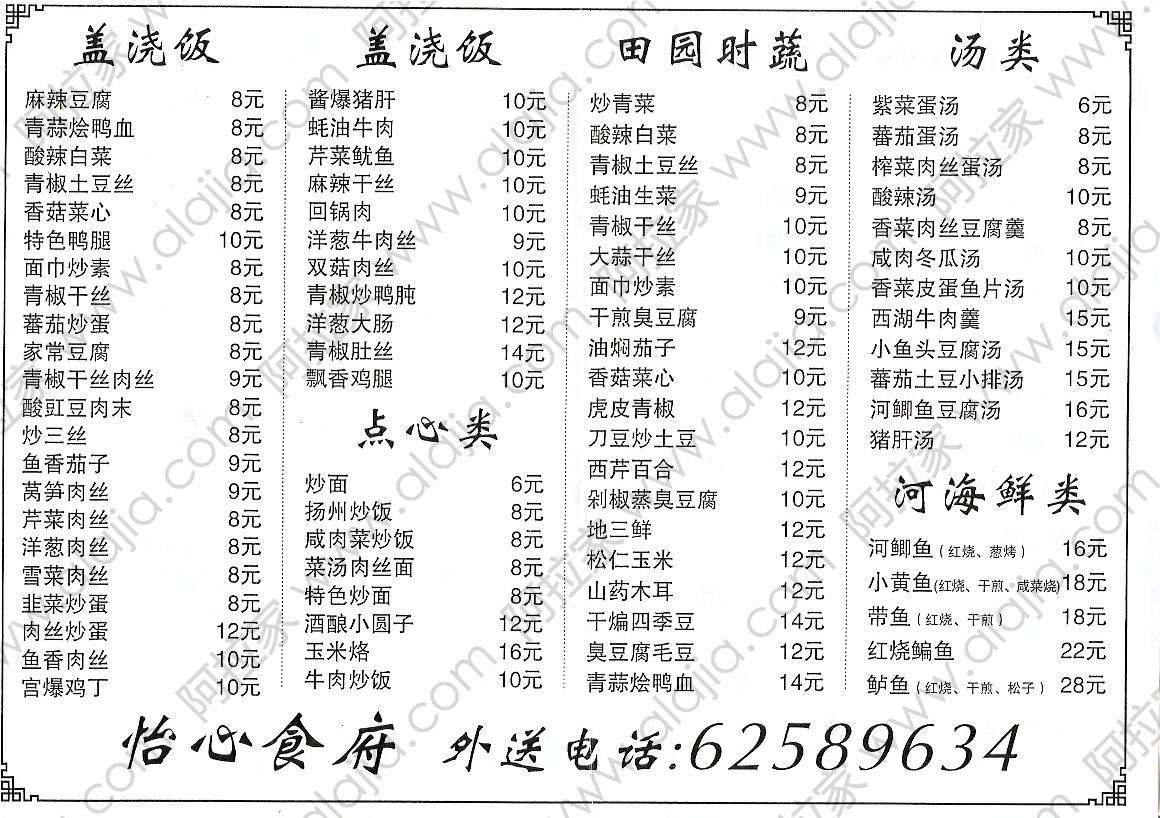 盖浇饭
麻辣豆腐 8元
青蒜烩鸭血 8元
酸辣白菜 8元
青椒土豆丝 8元
香菇菜心 8元
特色鸭腿 10元
面巾炒素 8元
青椒干丝 8元
蕃茄炒蛋 8元
家常豆腐 8元
青椒干丝肉丝 9元
酸豇豆肉末 8元
炒三丝 8元
鱼香茄子 9元
莴笋肉丝 9元
芹菜肉丝 8元
洋葱肉丝 8元
雪菜肉丝 8元
韭菜炒蛋 8元
肉丝炒蛋 12元
鱼香肉丝 10元
宫爆鸡丁 10元
盖浇饭
酱爆猪肝 10元
蚝油牛肉 10元
芹菜鱿鱼 10元
麻辣干丝 10元
回锅肉 10元
洋葱牛肉丝 9元
双菇肉丝 10元
青椒炒鸭肫 12元
洋葱大肠 12元
青椒肚丝 14元
飘香鸡腿 10元
点心类
炒面 6元
扬州炒饭 8元
咸肉菜炒饭 8元
菜汤肉丝面 8元
特色炒面 8元
酒酿小圆子 12元
玉米烙 16元
牛肉炒饭 10元
田园时蔬
炒青菜 8元
酸辣白菜 8元
青椒土豆丝 8元
蚝油生菜 9元
青椒干丝 10元
大蒜干丝 10元
面巾炒素 10元
干煎臭豆腐 9元
油焖茄子 12元
香菇菜心 10元
虎皮青椒 12元
刀豆炒土豆 10元
西芹百合 12元
剁椒蒸臭豆腐 10元
地三鲜 12元
松仁玉米 12元
山药木耳 12元
干煸四季豆 14元
臭豆腐毛豆 12元
青蒜烩鸭血 14元
汤类
紫菜蛋汤 6元
蕃茄蛋汤 8元
榨菜肉丝蛋汤 8元
酸辣汤 10元
香菜肉丝豆腐羹 8元
咸肉冬瓜汤 10元
香菜皮蛋鱼片汤 10元
西湖牛肉羹 15元
小鱼头豆腐汤 15元
蕃茄土豆小排汤 15元
河鲫鱼豆腐汤 16元
猪肝汤 12元
河海鲜类
河鲫鱼（红烧、葱烤） 16元
小黄鱼(红烧、干煎、咸菜烧) 18元
带鱼（红烧、干煎） 18元
红烧鳊鱼 22元
鲈鱼（红烧、干煎、松子） 28元
怡心食府 外送电话:62589634
阿拉家 www.alajia.com